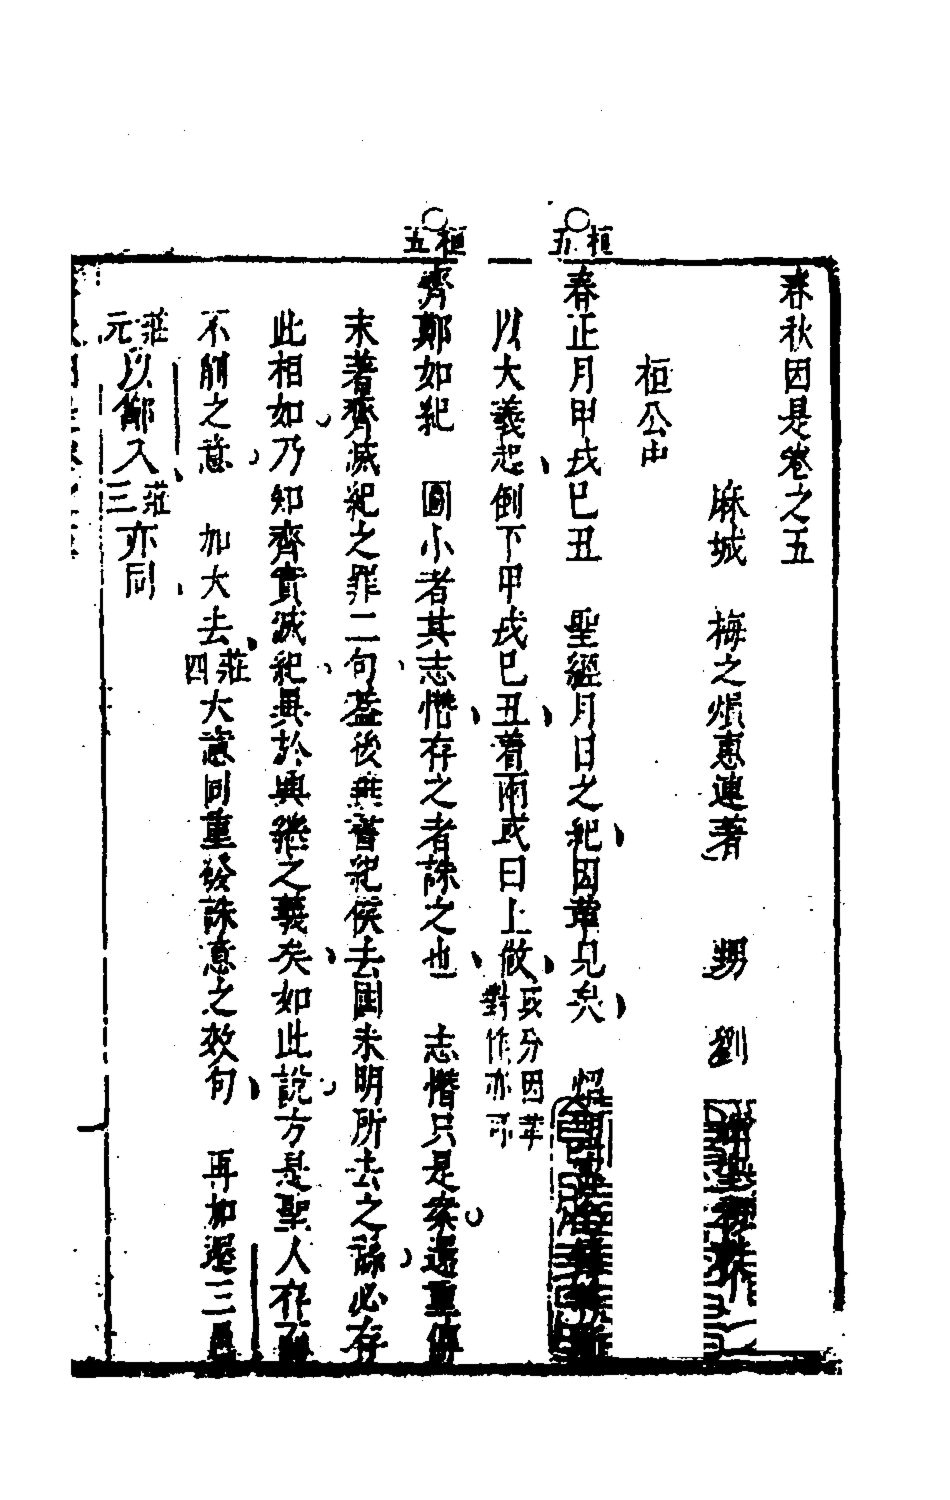 春秋因是卷之五
麻城　梅之熉惠連著　　甥　劉
桓公中
桓五
春正月甲戌巳丑　聖經月日之紀因革見矣
以大義起倒下甲戌巳丑着兩或曰上做或分因革對作亦可
桓五
齊鄭如紀　圖小者其志憯存之者誅之也　志憯只是案還重傳
末著齊滅紀之罪二句葢後無書紀侯去国未明所去之誅必存
此相如乃知齊實滅紀與於興繼之義矣如此說方是聖人存而
不削之意　加大去莊四大意同重發誅意之效句　再加遇三
莊元以鄑入莊三亦同